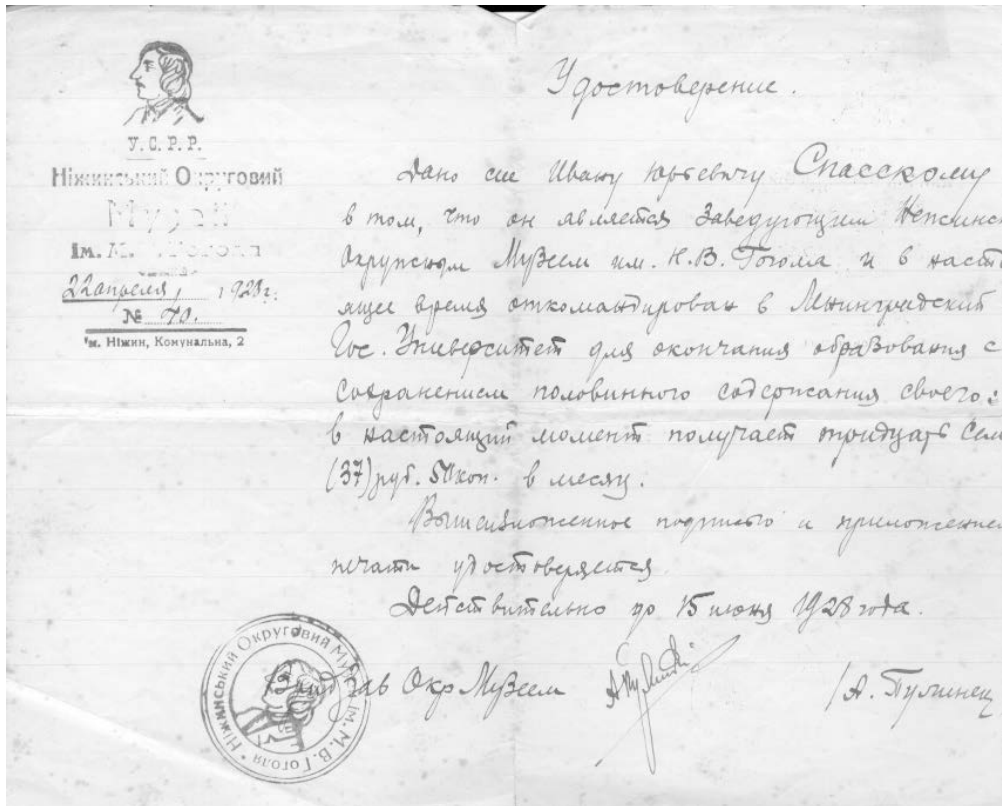 У. С. Р. Р.
Ніжинський Округовий
Музей
Ім. М. В. Гоголя
22 апреля, 1928 г.
№ 70.
м. Ніжин, Комунальна, 2
Удостоверение.
Дано сие Ивану Юрьевичу Спасскому
в том, что он является Заведующим Нежинск
Окружным Музеем им. Н.В. Гоголя и в насто
ящее время откомандирован в Ленинградский
Гос. Университет для окончания образования с
сохранением половинного содержания своего:
в настоящий момент получает тридцать сем
(37) руб. 50 коп. в месяц.
Вышеизложенное подписью и приложением
печати удостоверяется.
Действительно до 15 июня 1928 года.
Зав Окр Музеем
/А. Пулинец
Ніжинський Округовий Музей ім. М. В. Гоголя